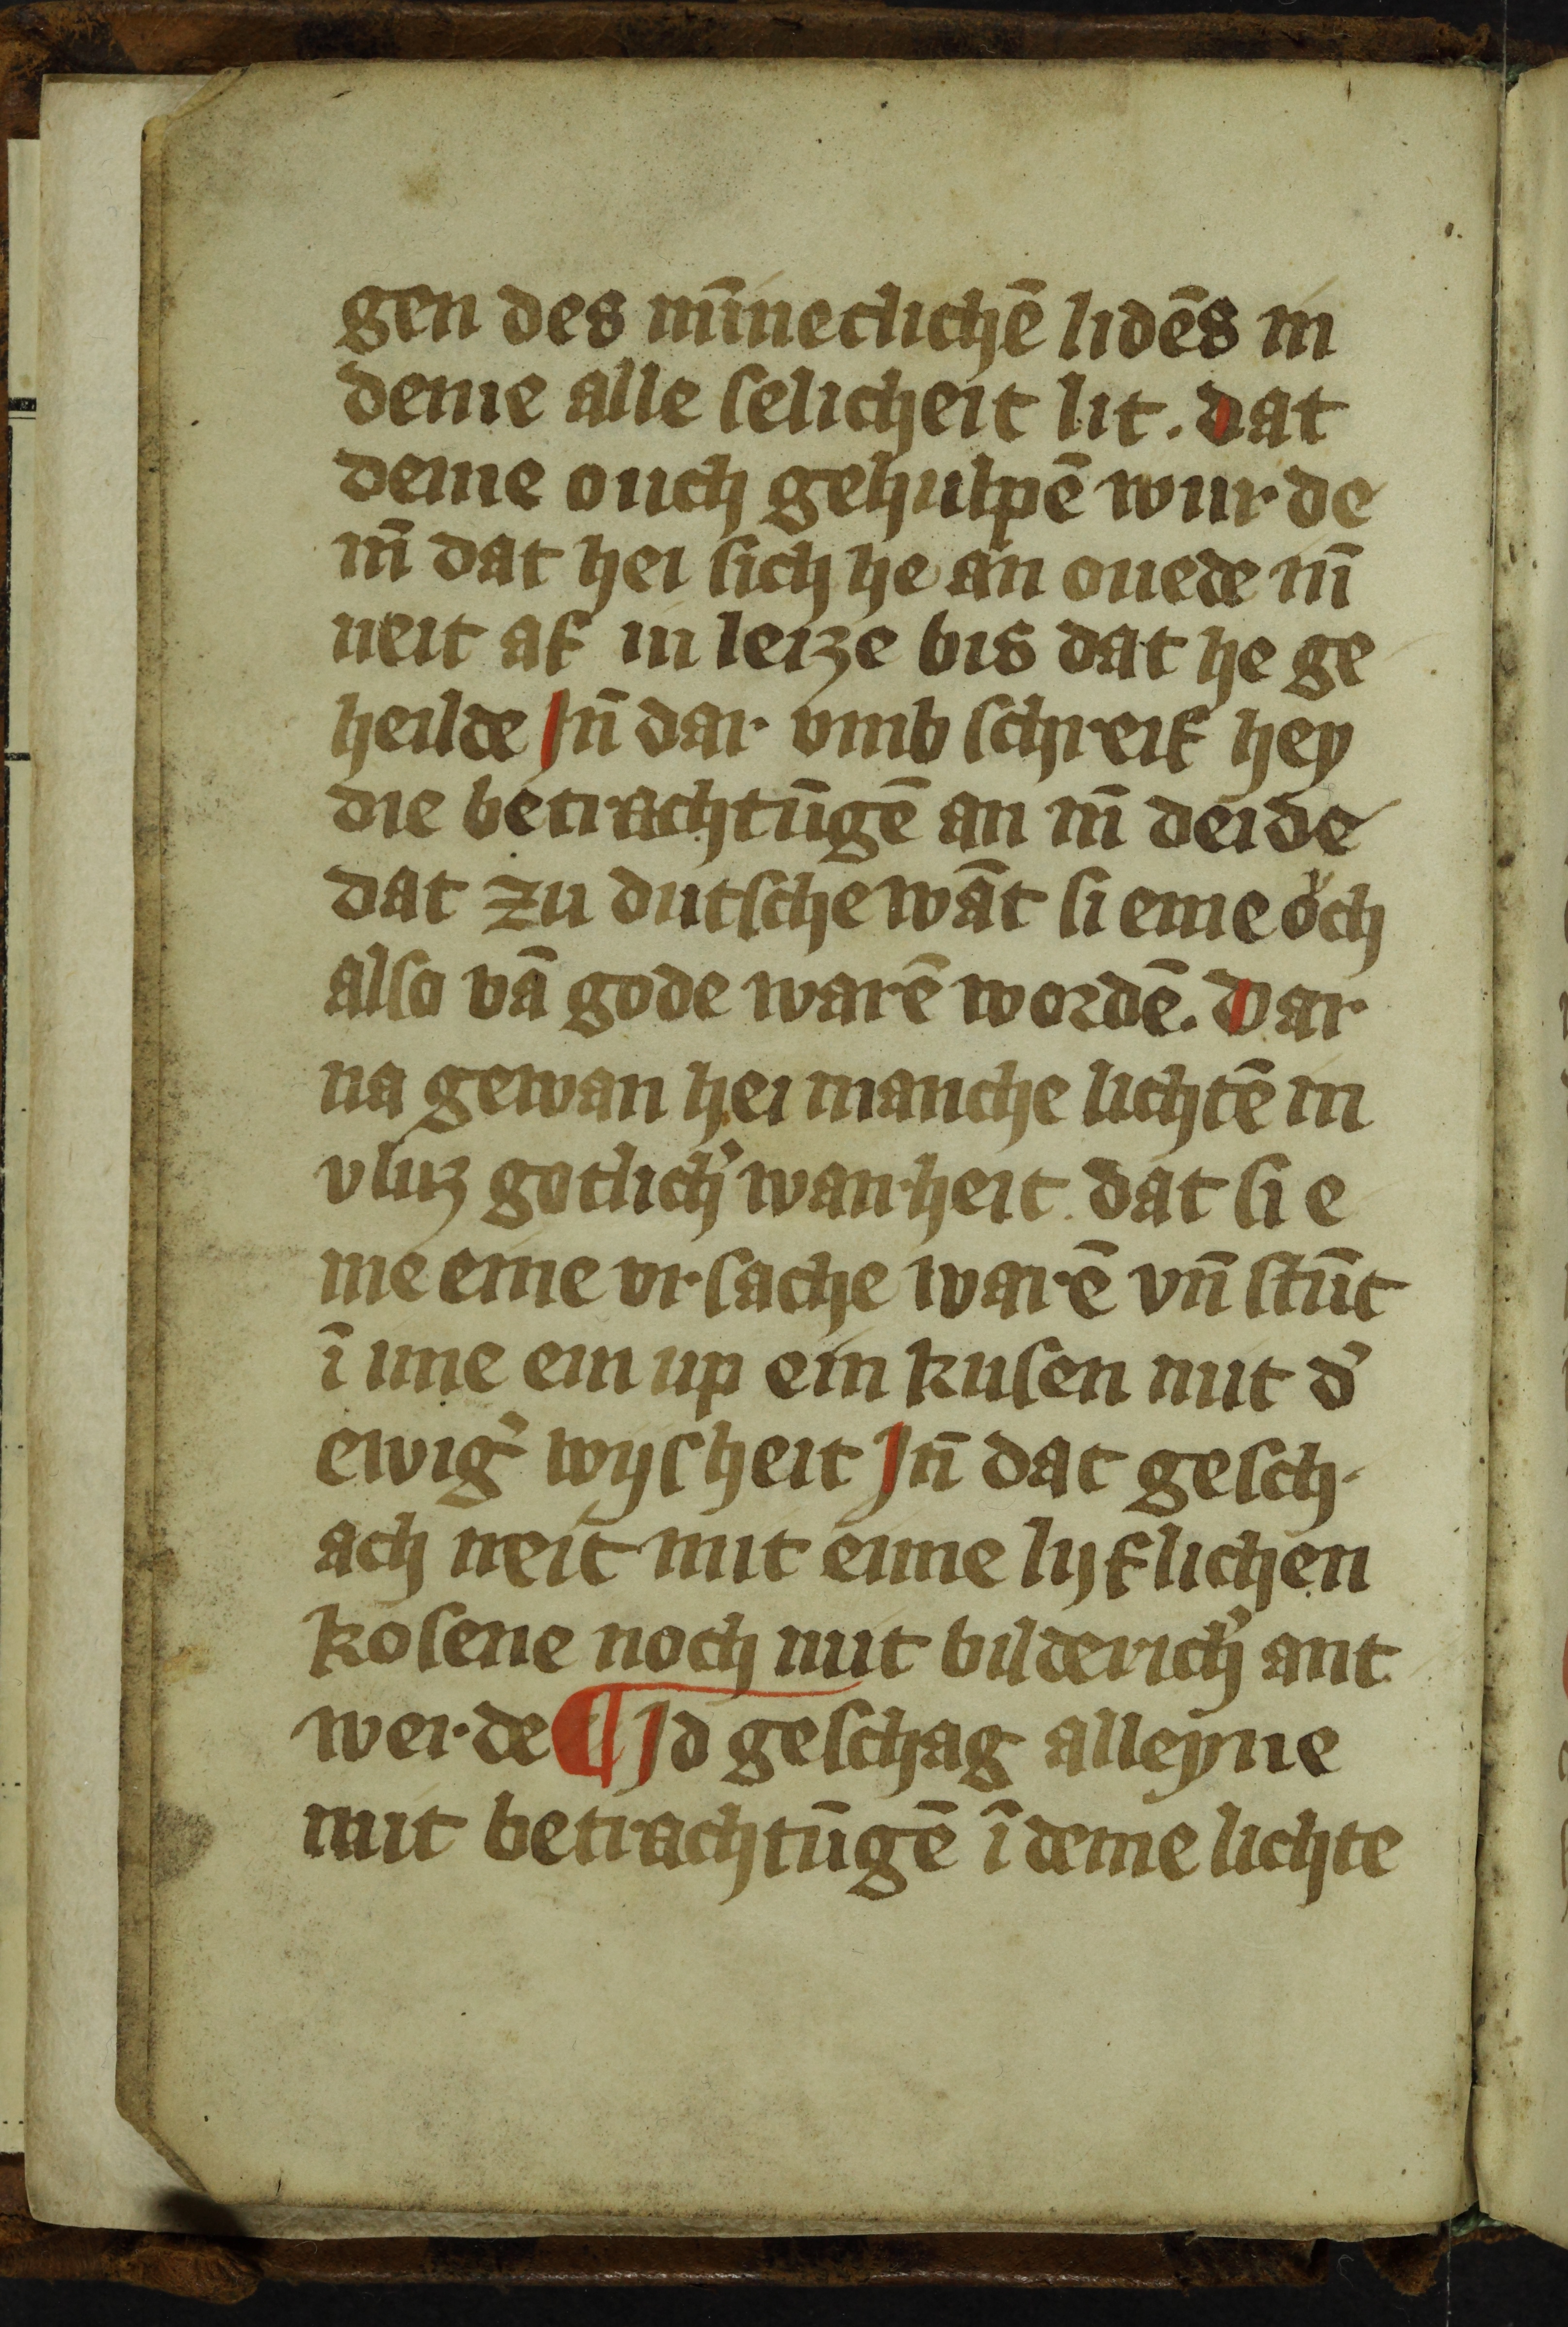 gen des mīneclichē lidēs in
deme alle selicheit lit. dat
deme ouch gehulpē wurde
in̄ dat hei sich he an ouede in̄
neit af in leize bis dat he ge
heilde Jn̄ dar vmb schreif hey
die betrachtūgē an in̄ deide
dat zu dutsche wāt si eme oͮch
also vā gode warē wordē. Dar
na gewan hei manche lichtē in
vluz gotlich' warheit dat si e
me eine vrsache warē vn̄ stūt
ī ime ein up ein kusen mit d'
ewig' wijsheit Jn̄ dat gesch-
ach neit mit eime lijflichen
kosene noch mit bilderich' ant
werde ¶ Jd geschag alleyne
mit betrachtūgē ī deme lichte